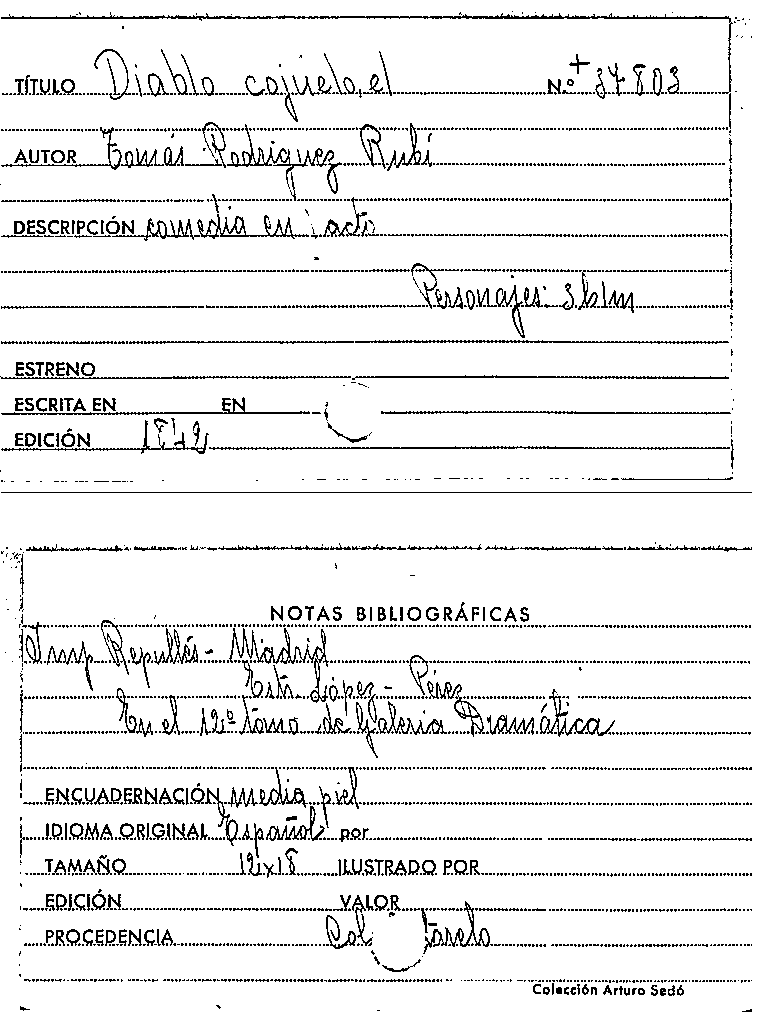 TÍTULO Diablo cojuelo, el N.º + 37803
AUTOR Tomás Rodríguez Rubí
DESCRIPCIÓN comedia en 1 acto
Personajes: 3h1m
ESTRENO
ESCRITA EN EN
EDICIÓN 1842
NOTAS BIBLIOGRÁFICAS
Imp Repullés - Madrid
Estr. López - Pérez
En el 12º tomo de Galeria Dramática
ENCUADERNACIÓN media piel
IDIOMA ORIGINAL Español por
TAMAÑO 12x18 ILUSTRADO POR
EDICIÓN VALOR
PROCEDENCIA Col tarelo
Colección Arturo Sedó